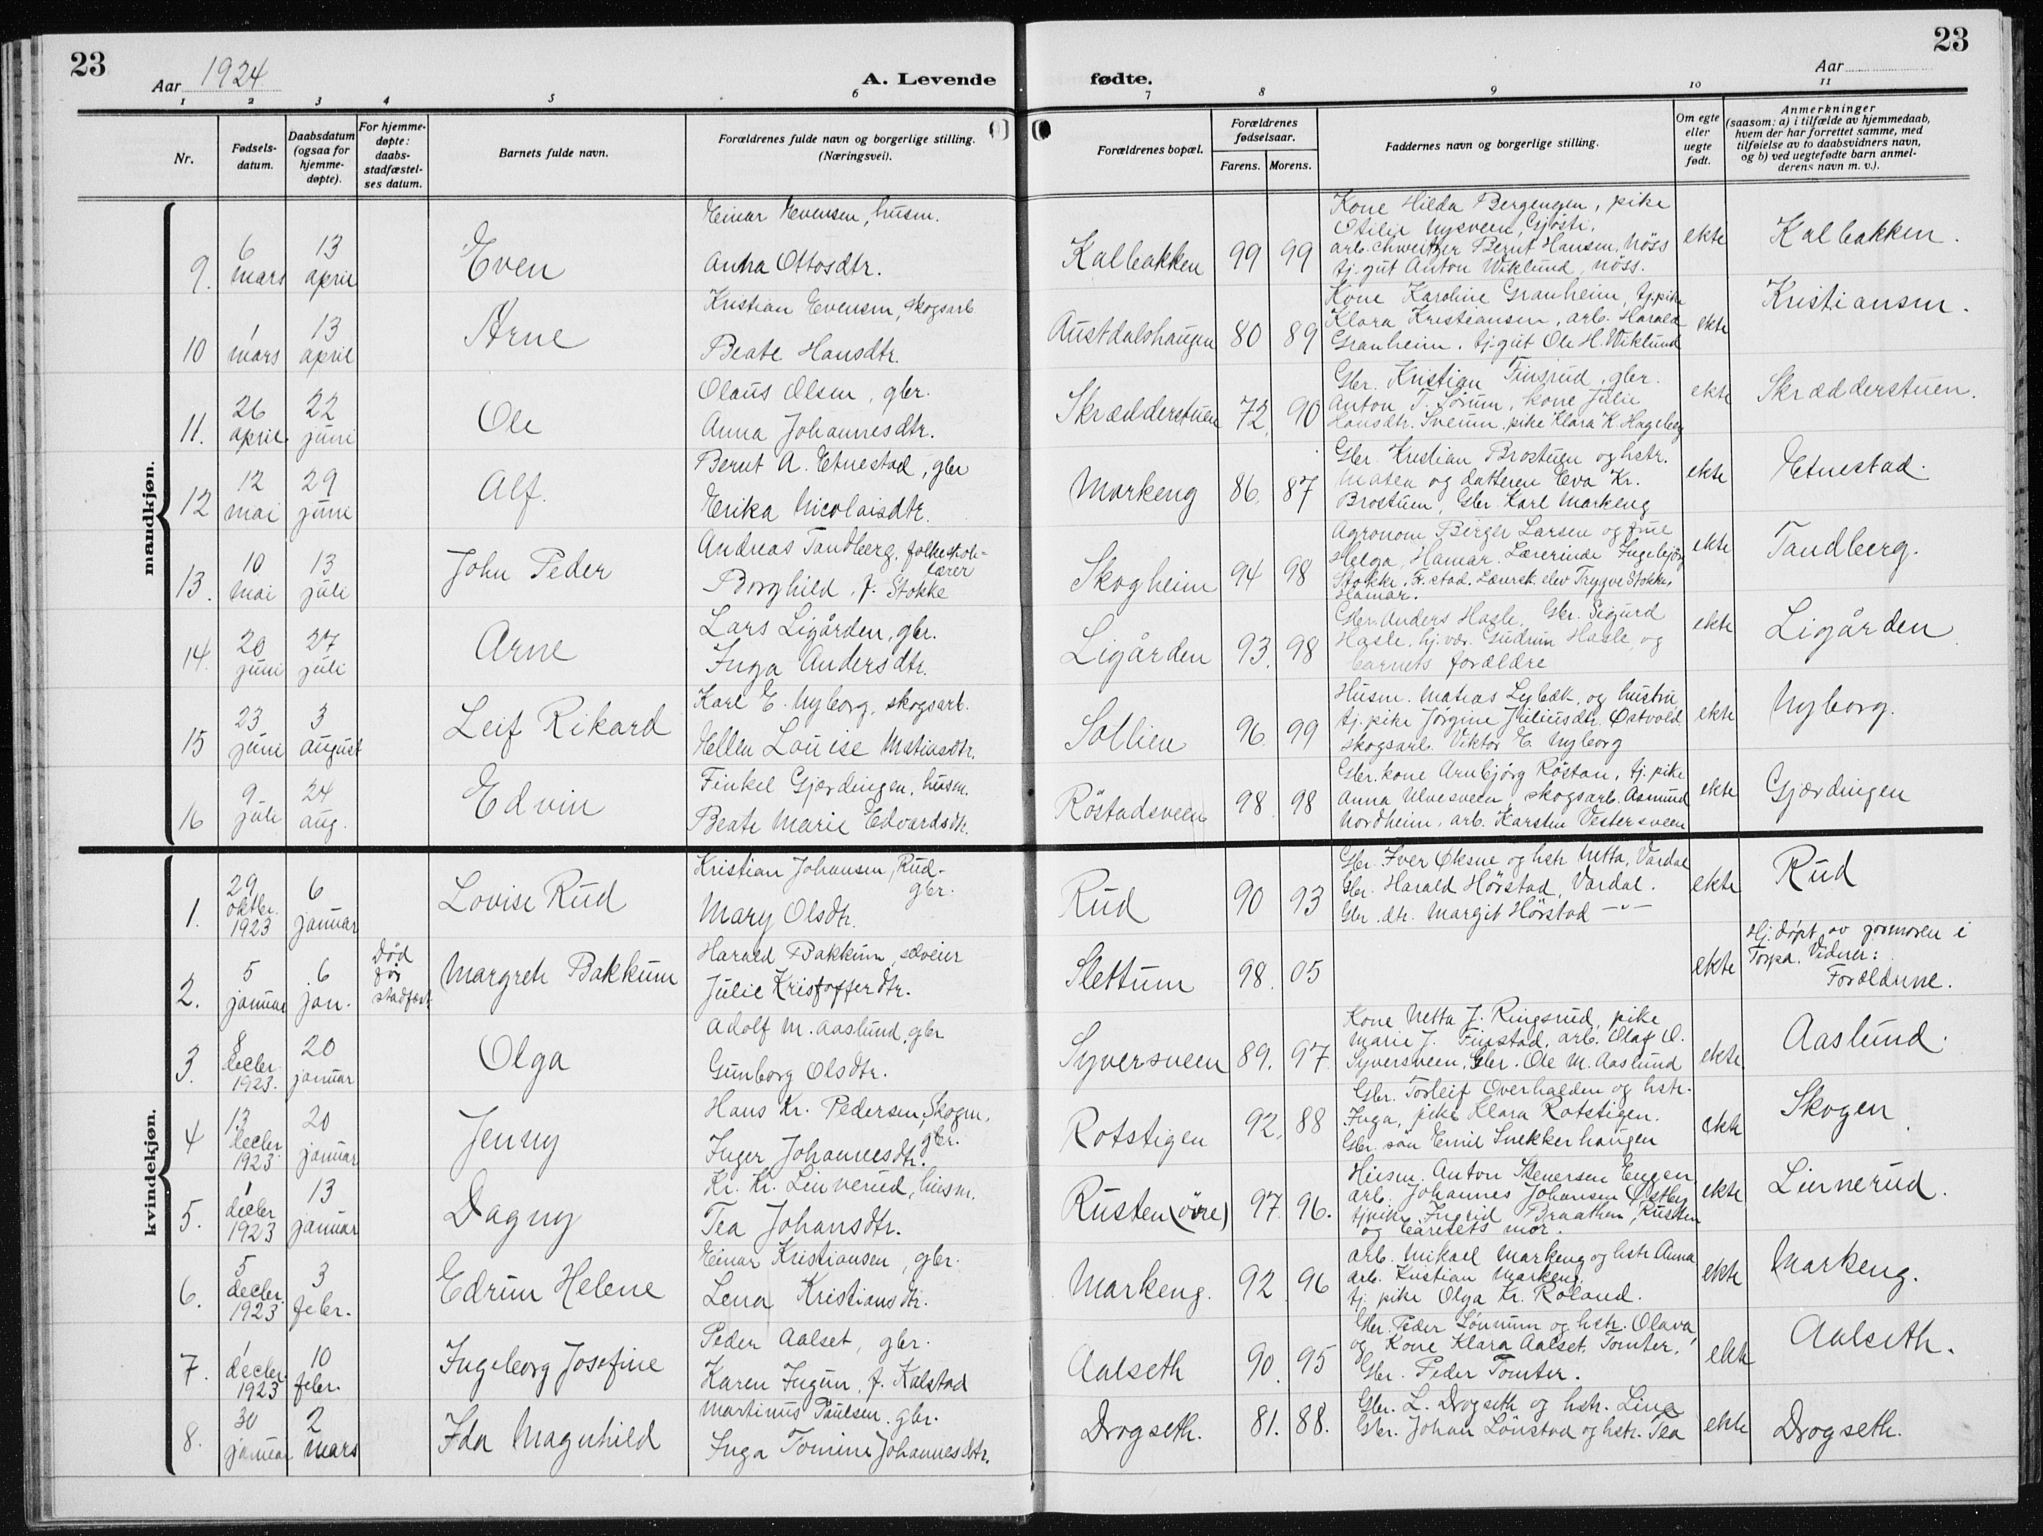 23
Aar 1924
A. Levende
fødte.
Aar
23
1 2 3 4 5 6 7 8 9 10 11
Nr.
Fødsels-
datum.
Daabsdatum
(ogsaa for
hjemme-
døpte).
For hjemme-
døpte:
daabs-
stadfæstel-
ses datum.
Barnets fulde navn.
Forældrenes fulde navn og borgerlige stilling.
(Næringsvei).
Forældrenes bopæl.
Forældrenes
fødselsaar.
Farens. Morens.
Faddernes navn og borgerlige stilling.
Om egte
eller
uegte
født.
Anmerkninger
(saasom: a) i tilfælde av hjemmedaab,
hvem der har forrettet samme, med
tilføielse av to daabsvidners navn,
og b) ved uegtefødte barn anmel-
derens navn m. v.).
mandkjøn.
9. 6 mars 13 april Even
Einar Evensen, husm.
Anna Ottosdtr.
Kalbakken 99 99
Kone Hilda Bergengen, pike
Otilie Nysveen, Gjösti,
arb. chweitzer Bernt Hansen, Nöss
tj. gut Anton Wiklund, Nöss.
ekte Kalbakken.
10 1 mars 13 april Arne
Kristian Evensen, skogsarb
Beate Hansdtr.
Austdalshaugen 80 89
Kone Karoline Granheim, tj. pike
Klara Kristiansen, arb. Harald
Granheim, tj. gut Ole H. Wiklund
ekte Kristiansen.
11. 26 april 22 juni Ole
Olaus Olsen, gbr.
Anna Johannesdtr.
Skrædderstuen 72. 90
Gbr. Kristian Finsrud, gbr.
Anton T. Sörum, kone Julie
Hansdtr. Sveum, pike Klara K. Hageberg
ekte Skrædderstuen.
12 12 mai 29 juni Alf.
Bernt A. Etnestad, gbr
Erika Nicolaisdtr.
Markeng 86. 87
Gbr. Kristian Brostuen og hstr.
Matea og datteren Eva Kr.
Brostuen, Gbr. Karl Markeng
ekte Etnestad.
13. 10 mai 13 juli John Peder
Andreas Tandberg, folkeskole-
lærer
Borghild, f. Stokke
Skogheim 94 98
Agronom Birger Larsen og frue
Helga, Hamar. Lærerinde Ingebjörg
Stokke, F.stad. Lærersk. elev Trygve Stokke,
Hamar.
ekte Tandberg.
14. 20 juni 27 juli Arne
Lars Ligården, gbr.
Inga Andersdtr.
Ligården 93. 98
Gbr. Anders Hasle. Gbr. Sigurd
Hasle, hj.vær. Gudrun Hasle, og
barnets forældre
ekte Ligården
15 23 juni 3 august Leif Rikard
Karl E. Nyborg, skogsarb.
Hellen Louise Matiasdtr.
Sollien 96. 99
Husm. Matias Lybæk, og hustru
tj. pike Jørgine Juliusdtr. Østvold
skogsarb. Viktor E. Nyborg
ekte Nyborg.
16 9 juli 24 aug. Edvin
Finkel Gjærdingen, husm.
Beate Marie Edvardsdtr.
Röstadsveen 98. 98
Gbr. kone Arnbjörg Röstan, tj. pike
Anna Ulvesveen, skogsarb. Asmund
Nordheim, arb. Karsten Vestersveen
ekte Gjærdingen
kvindekjøn.
1. 29 oktbr. 1923 6 januar Lovise Rud
Kristian Johansen, Rud-
gbr.
Mary Olsdtr.
Rud 90 93
Gbr. Iver Øksne og hstr Netta, Vardal
Gbr. Harald Hörstad, Vardal.
Gbr. dtr. Margit Hörstad —"—
ekte Rud
2. 5 januar 6 jan. Död för stadfæst. Margreth Bakkum
Harald Bakkum, selveier
Julie Kristofferdtr.
Slettum 98. 05
ekte
Hj. döpt av jormoren i
Torpa. Vidner:
Forældrene.
3. 8 decbr. 1923. 20 januar Olga
Adolf M. Aaslund, gbr
Gunborg Olsdtr.
Syversveen 89. 97
Kone Netta J. Ringsrud, pike
Marie J. Finstad, arb. Olag O.
Syversveen, Gbr. Ole M. Aaslund
ekte Aaslund.
4 13 decbr. 1923 20 januar Jenny
Hans Kr. Pedersen, Skogen,
gbr.
Inger Johannesdtr.
Rotstigen 92. 88
Gbr. Torleif Overhalden og hstr.
Inga, pike Klara Rotstigen.
Gbr. sön Emil Snekkerhaugen
ekte Skogen
5. 1 decbr 1923 13 januar Dagny
Kr. Kr. Linnerud, husm.
Tea Johansdtr.
Rusten (övre) 97. 96.
Husm. Anton Stenersen Engen
arb. Johannes Johansen Østby
tj.pike Ingrid Braathen, Rusten
og barnets mor.
ekte Linnerud.
6. 5 decbr. 1923 3 febr. Edrun Helene
Einar Kristiansen, gbr.
Lena Kristiansdtr.
Markeng. 92 96
arb. Mikael Markeng og hstr. Anna
arb. Kristian Markeng.
tj. pike Olga Kr. Roland.
ekte Markeng.
7. 1 decbr 1923 10 febr. Ingeborg Josefine
Peder Aalset, gbr.
Karen Ingun, f. Kalstad
Aalseth 90. 95
Gbr. Peder Lönnum og hstr. Olava,
og Kone Klara Aalset, Tomter,
Gbr. Peder Tomter.
ekte Aalseth.
8. 30 januar 2 mars Ida Magnhild
Martinus Paulsen, gbr.
Inga Tomine Johannesdtr.
Drogseth. 81. 88.
Gbr. L. Drogseth og hstr. Lina
Gbr. Johan Lönstad og hstr. Tea
ekte Drogseth.